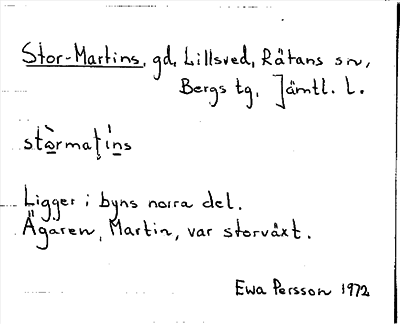 Stor-Martins, gd, Lillsved, Rätans sn,
Bergs tg, Jämtl. l.
stòrmaţíns
Ligger i byns norra del.
Ägaren, Martin, var storväxt.
Ewa Persson 1972